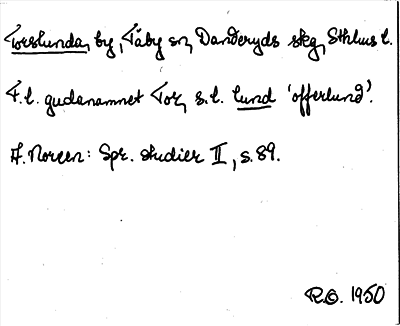 Torslunda, by, Täby sn, Danderyds skg, Sthlms l.
F.l. gudanamnet Tor, s.l. lund 'offerlund'.
A. Noreen: Spr. studier II, s. 89.
R.O. 1950